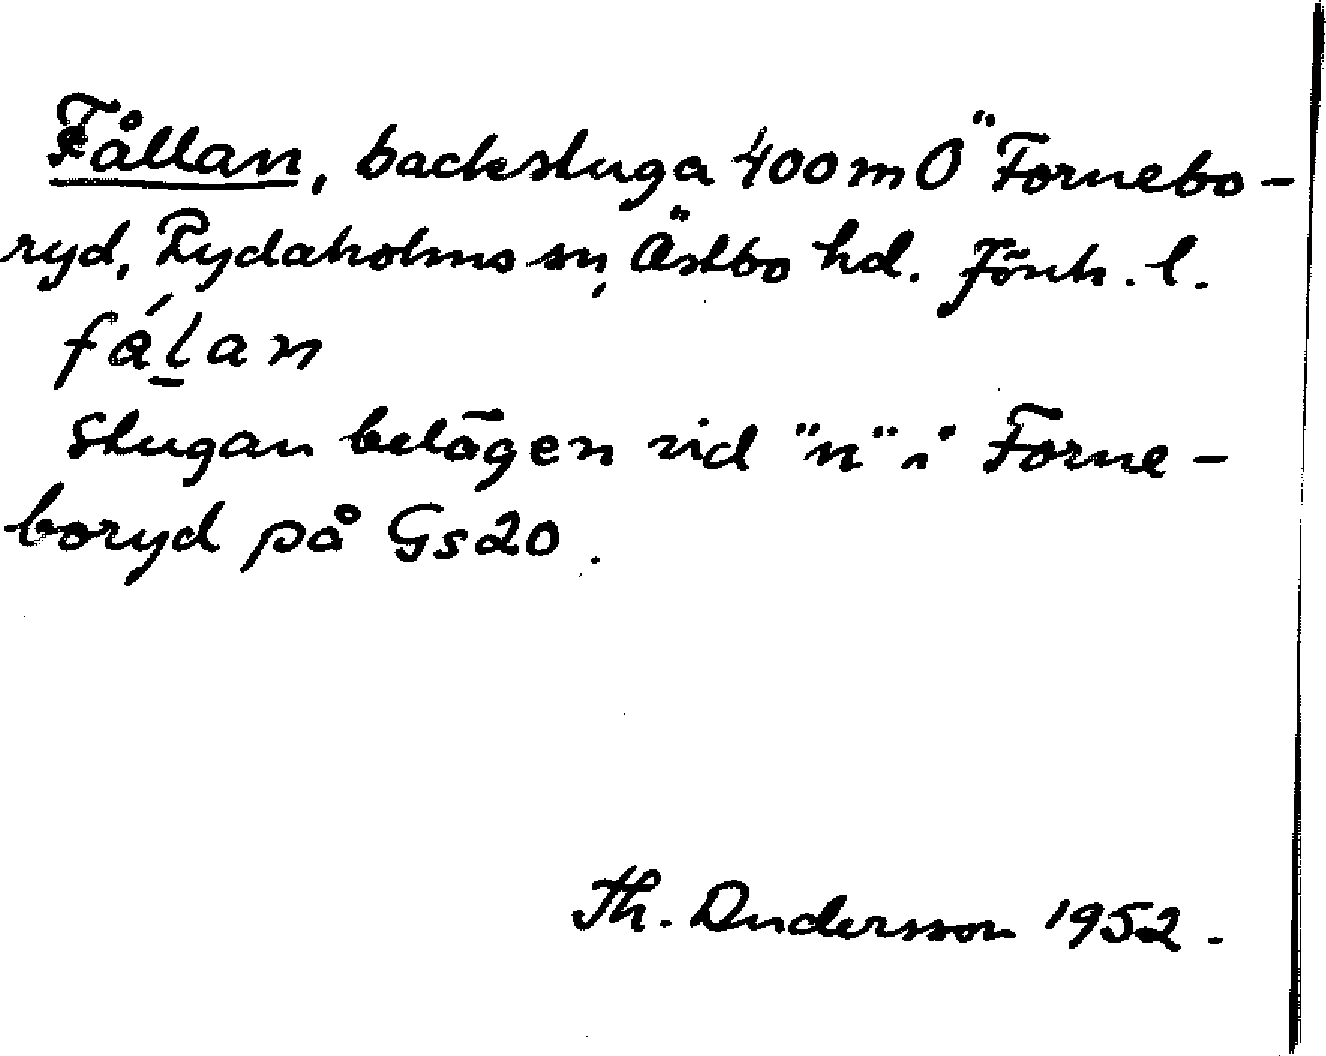 Fållan, backstuga 400 m Ö Fornebo-
ryd, Rydaholms sn, Östbo hd. Jönk. l.
fålan
Stugan belägen vid "n" i Forne-
boryd på Gs20.
Th. Andersson 1952.